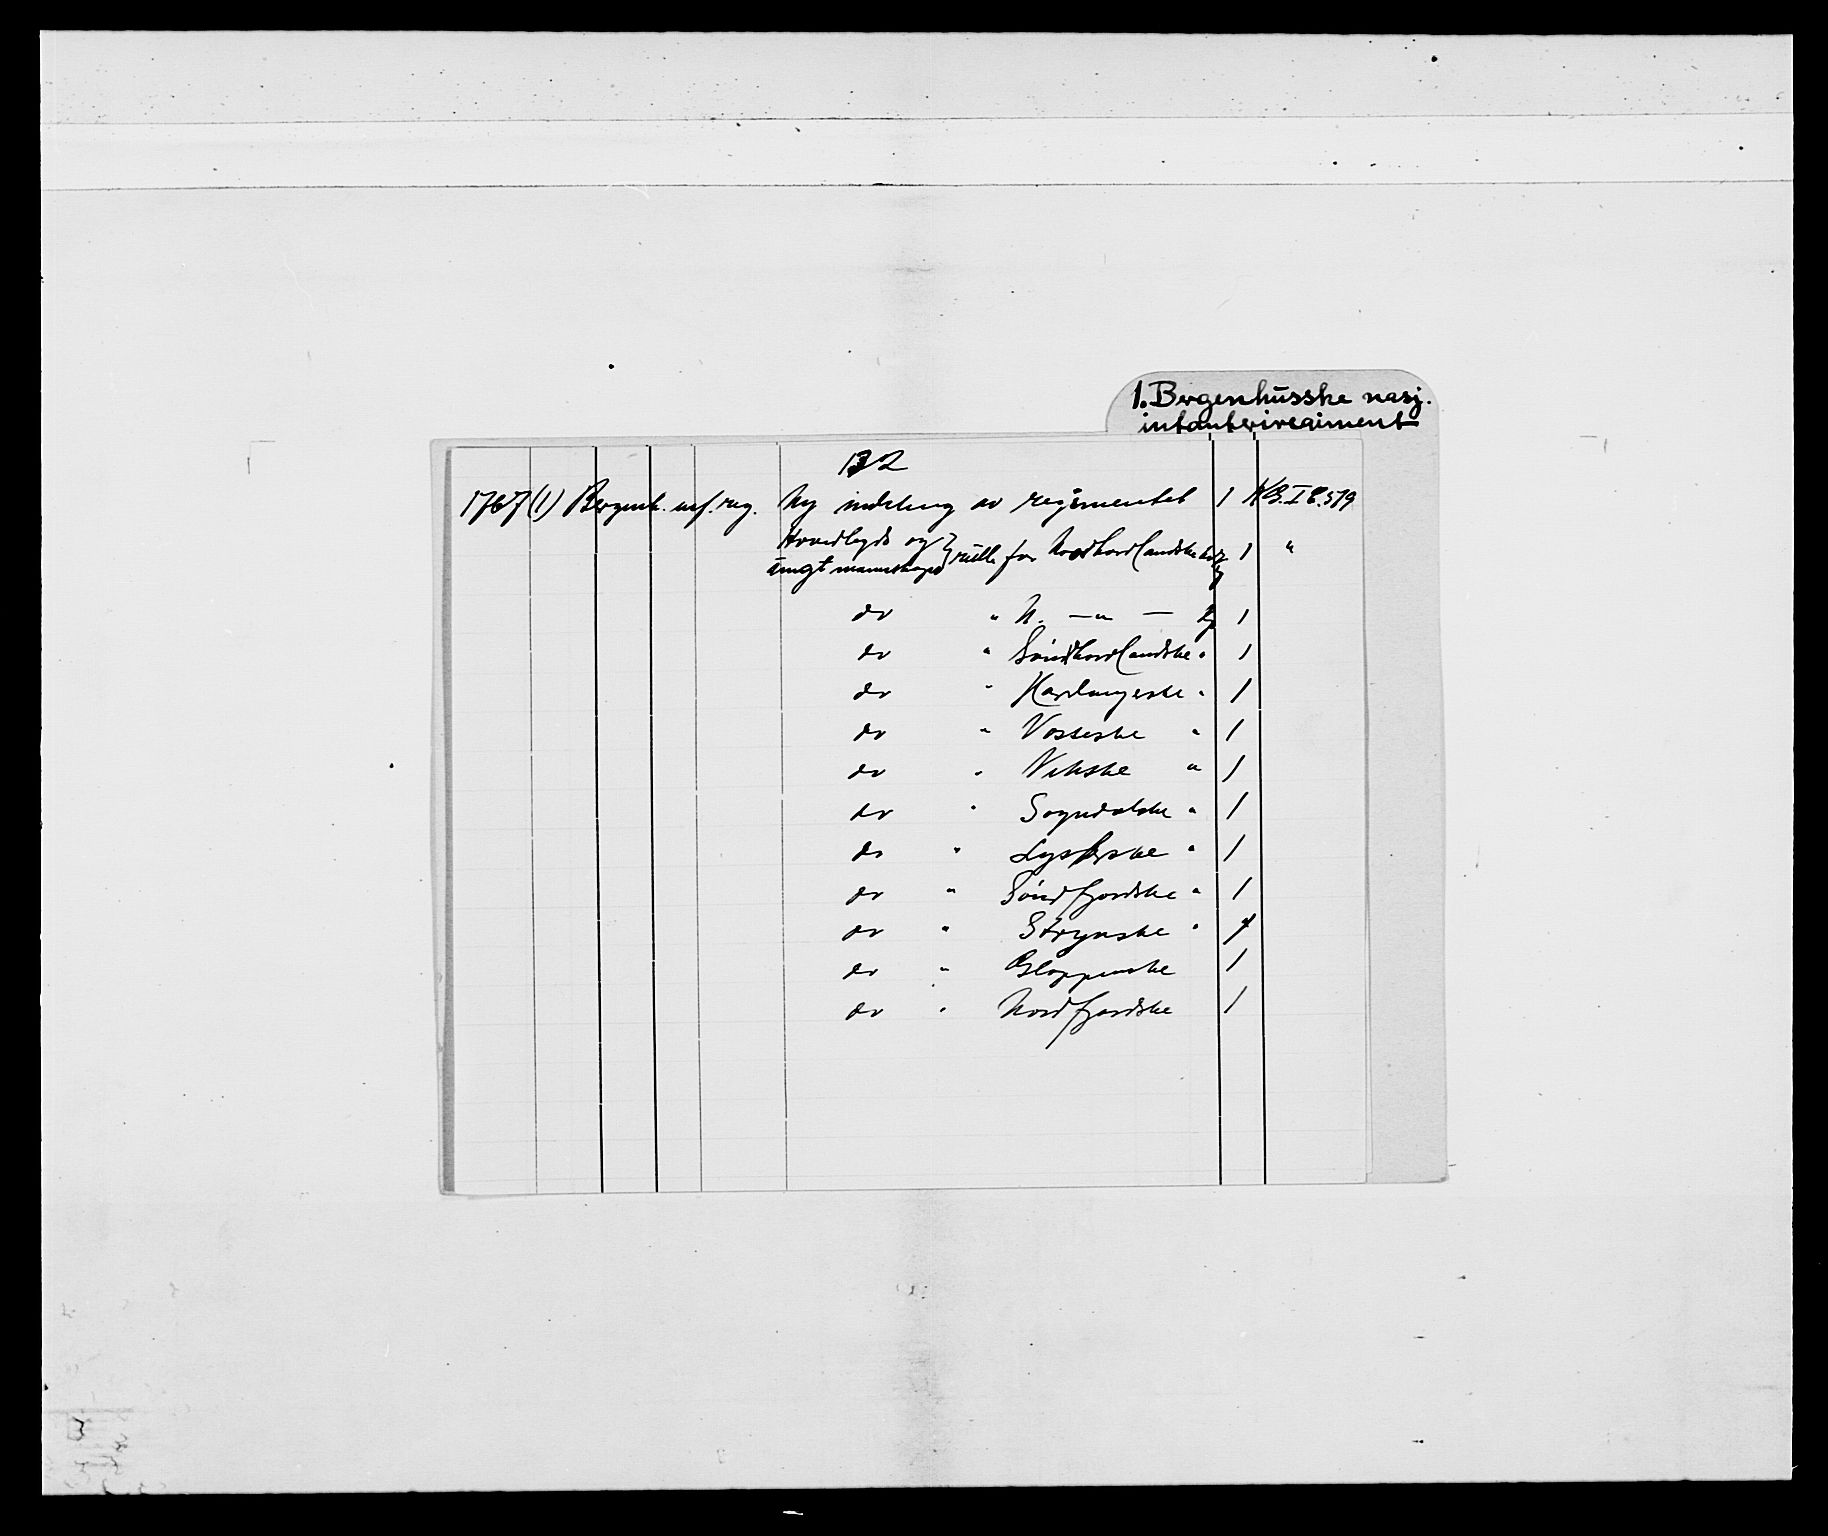 1. Bergenhusske nasj.
infanteriregiment
132
1767 (1) Bergenh. inf. reg. Ny inddeling av regimentet 1 KB. I C. 519
Hovedlægds og
ungt mannskaps } rulle for Nordhordlandske 1 "
do " N. — " — kp 1
do " Søndhordlandske " 1
do " Hardangerske " 1
do " Vosseske " 1
do " Vikske " 1
do " Sogndalske " 1
do " Lysterske " 1
do " Søndfjordske " 1
do " Strynske " 1
do " Gloppenske 1
do " Nordfjordske 1